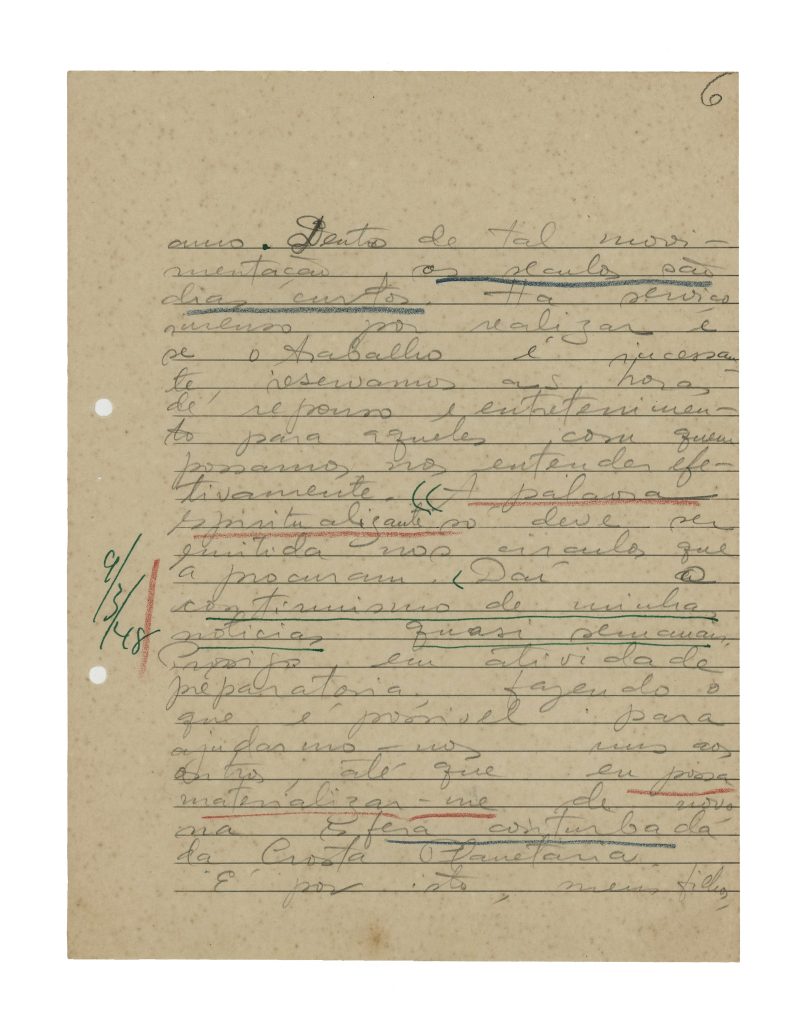 6
amo. Dentro de tal movi-
mentação, os seculos são
dias curtos. Ha serviço
imenso por realizar e
se o trabalho é incessan-
te, reservamos as horas
de repouso e entretenimen-
to para aqueles com quem
possamos nos entender efe-
tivamente. ((A palavra
espiritualizante só deve ser
emitida nos circulos que
a procuram. (Daí o
continuismo de minhas
noticias quasi semanais.
9/3/48
Prosigo em atividade
preparatoria, fazendo o
que é possivel para
ajudarmo-nos uns aos
outros, até que eu possa
materializar-me de novo
na Esfera conturbada
da Crosta Planetaria.
É por isto, meus filhos,